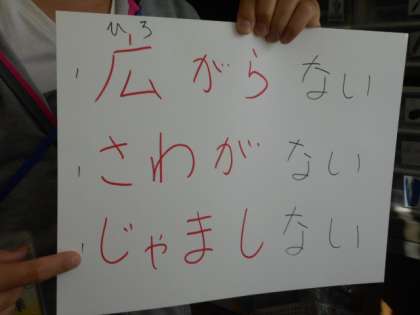 ひろ
1 広がらない
1 さわがない
1 じゃましない